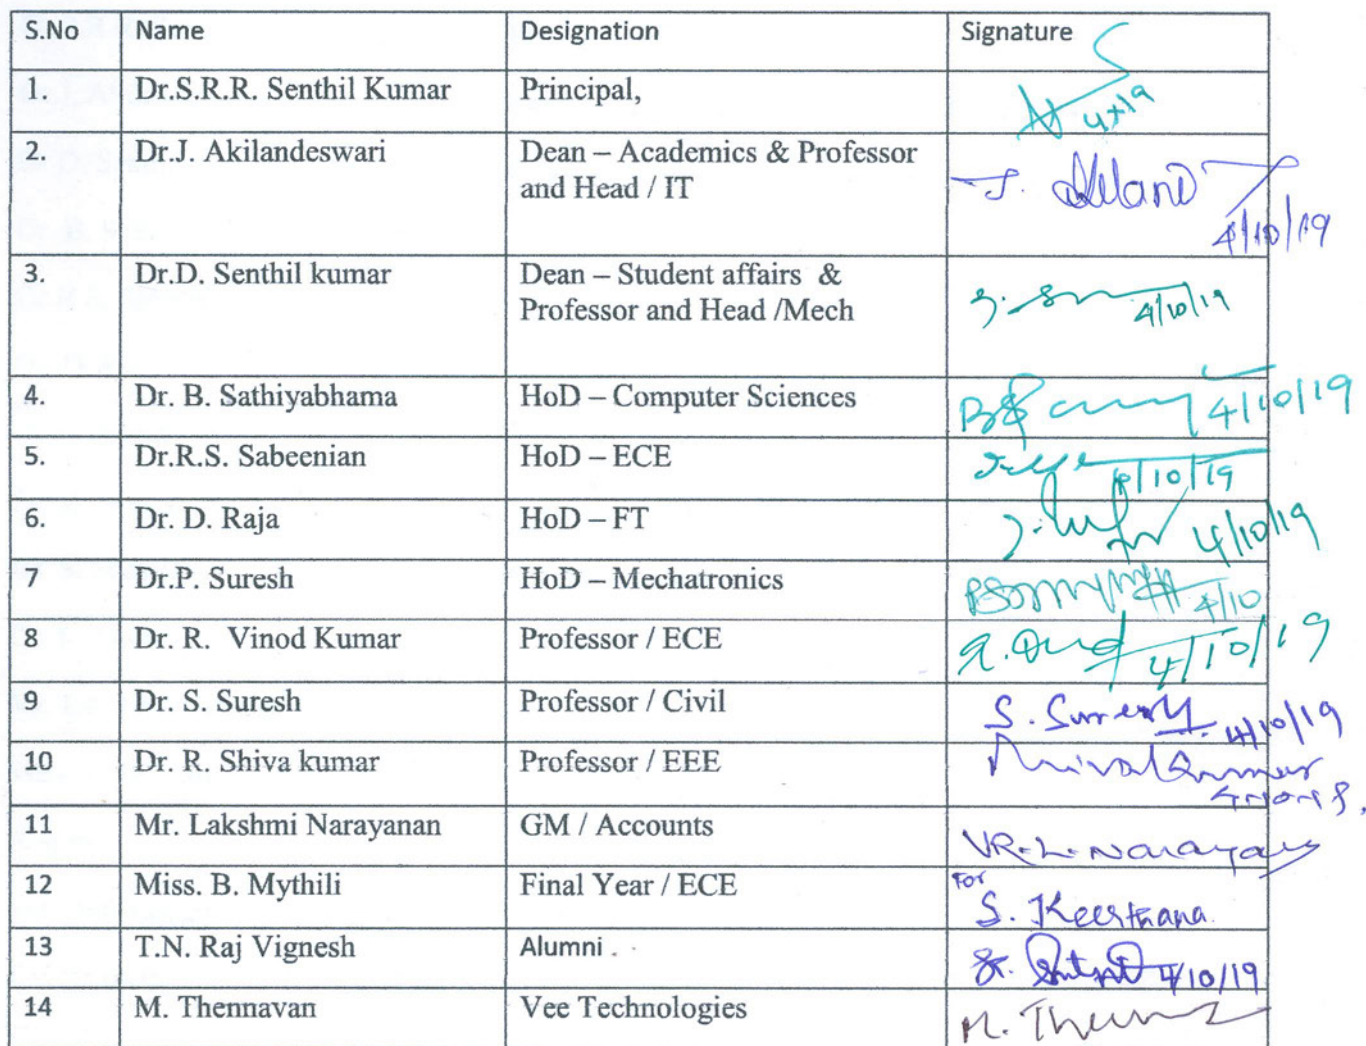 S.No Name Designation Signature
1. Dr.S.R.R. Senthil Kumar Principal,
2. Dr.J. Akilandeswari Dean – Academics & Professor
and Head / IT
4/10/19
3. Dr.D. Senthil kumar Dean – Student affairs &
Professor and Head /Mech
4/10/19
4. Dr. B. Sathiyabhama HoD – Computer Sciences 4/10/19
5. Dr.R.S. Sabeenian HoD – ECE
6. Dr. D. Raja HoD – FT 4/10/19
7 Dr.P. Suresh HoD – Mechatronics 4/10
8 Dr. R. Vinod Kumar Professor / ECE 4/10/19
9 Dr. S. Suresh Professor / Civil S. Suresh 4/10/19
10 Dr. R. Shiva kumar Professor / EEE
11 Mr. Lakshmi Narayanan GM / Accounts
12 Miss. B. Mythili Final Year / ECE For
S. Keerthana
13 T.N. Raj Vignesh Alumni . 4/10/19
14 M. Thennavan Vee Technologies